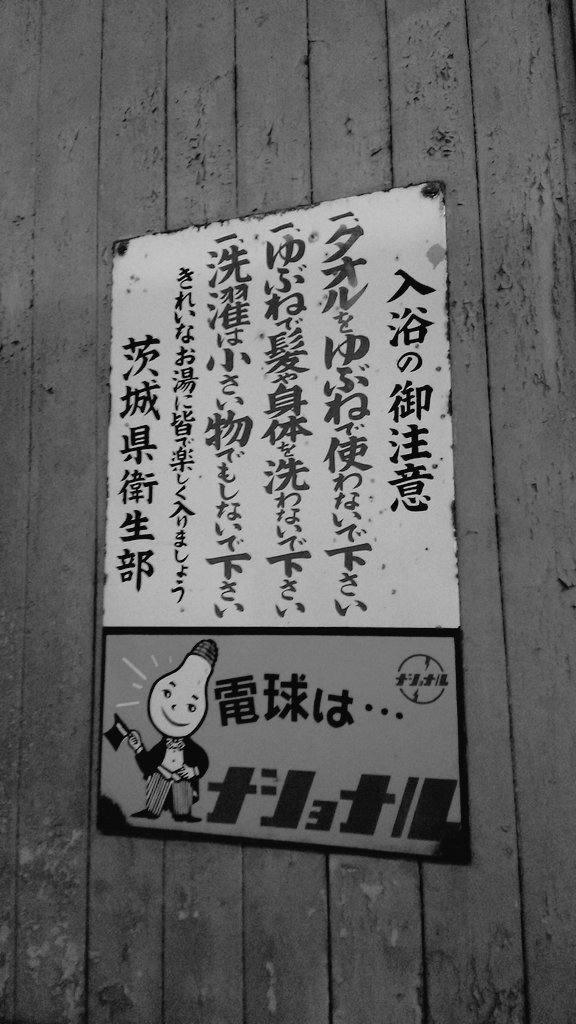 入浴の御注意
一、タオルをゆぶねで使わないで下さい
一、ゆぶねで髪や身体を洗わないで下さい
一、洗濯は小さい物でもしないで下さい
きれいなお湯に皆で楽しく入りましょう
茨城県衛生部
ナショナル
電球は…
ナショナル